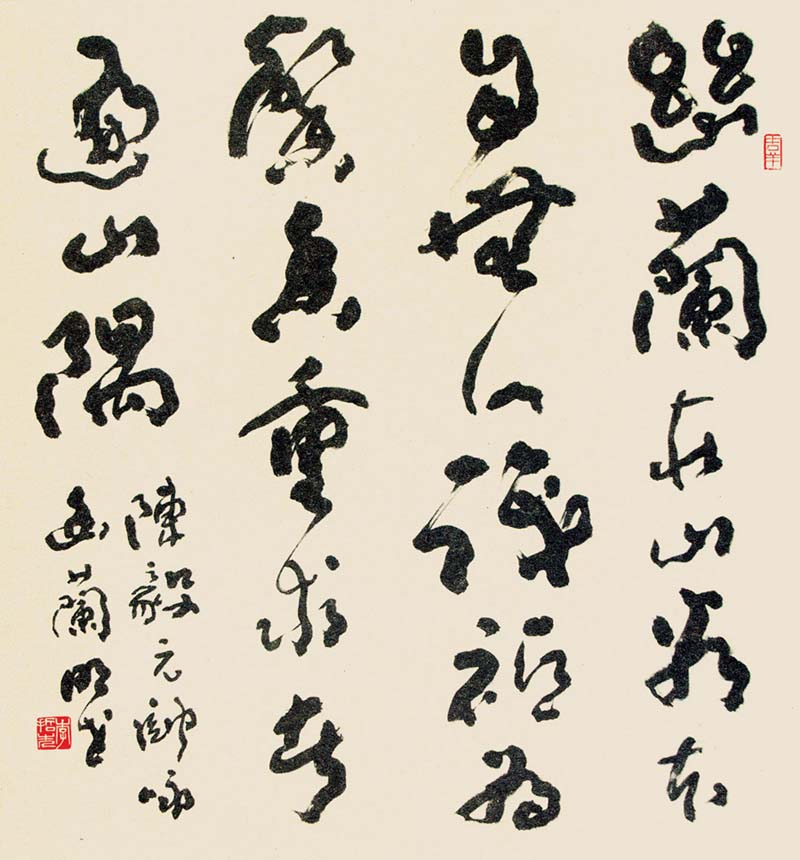 幽蘭在山谷本
自無人識祇為
馨香重求者
遍山隅
陳毅元帥詠
幽蘭
吉羊